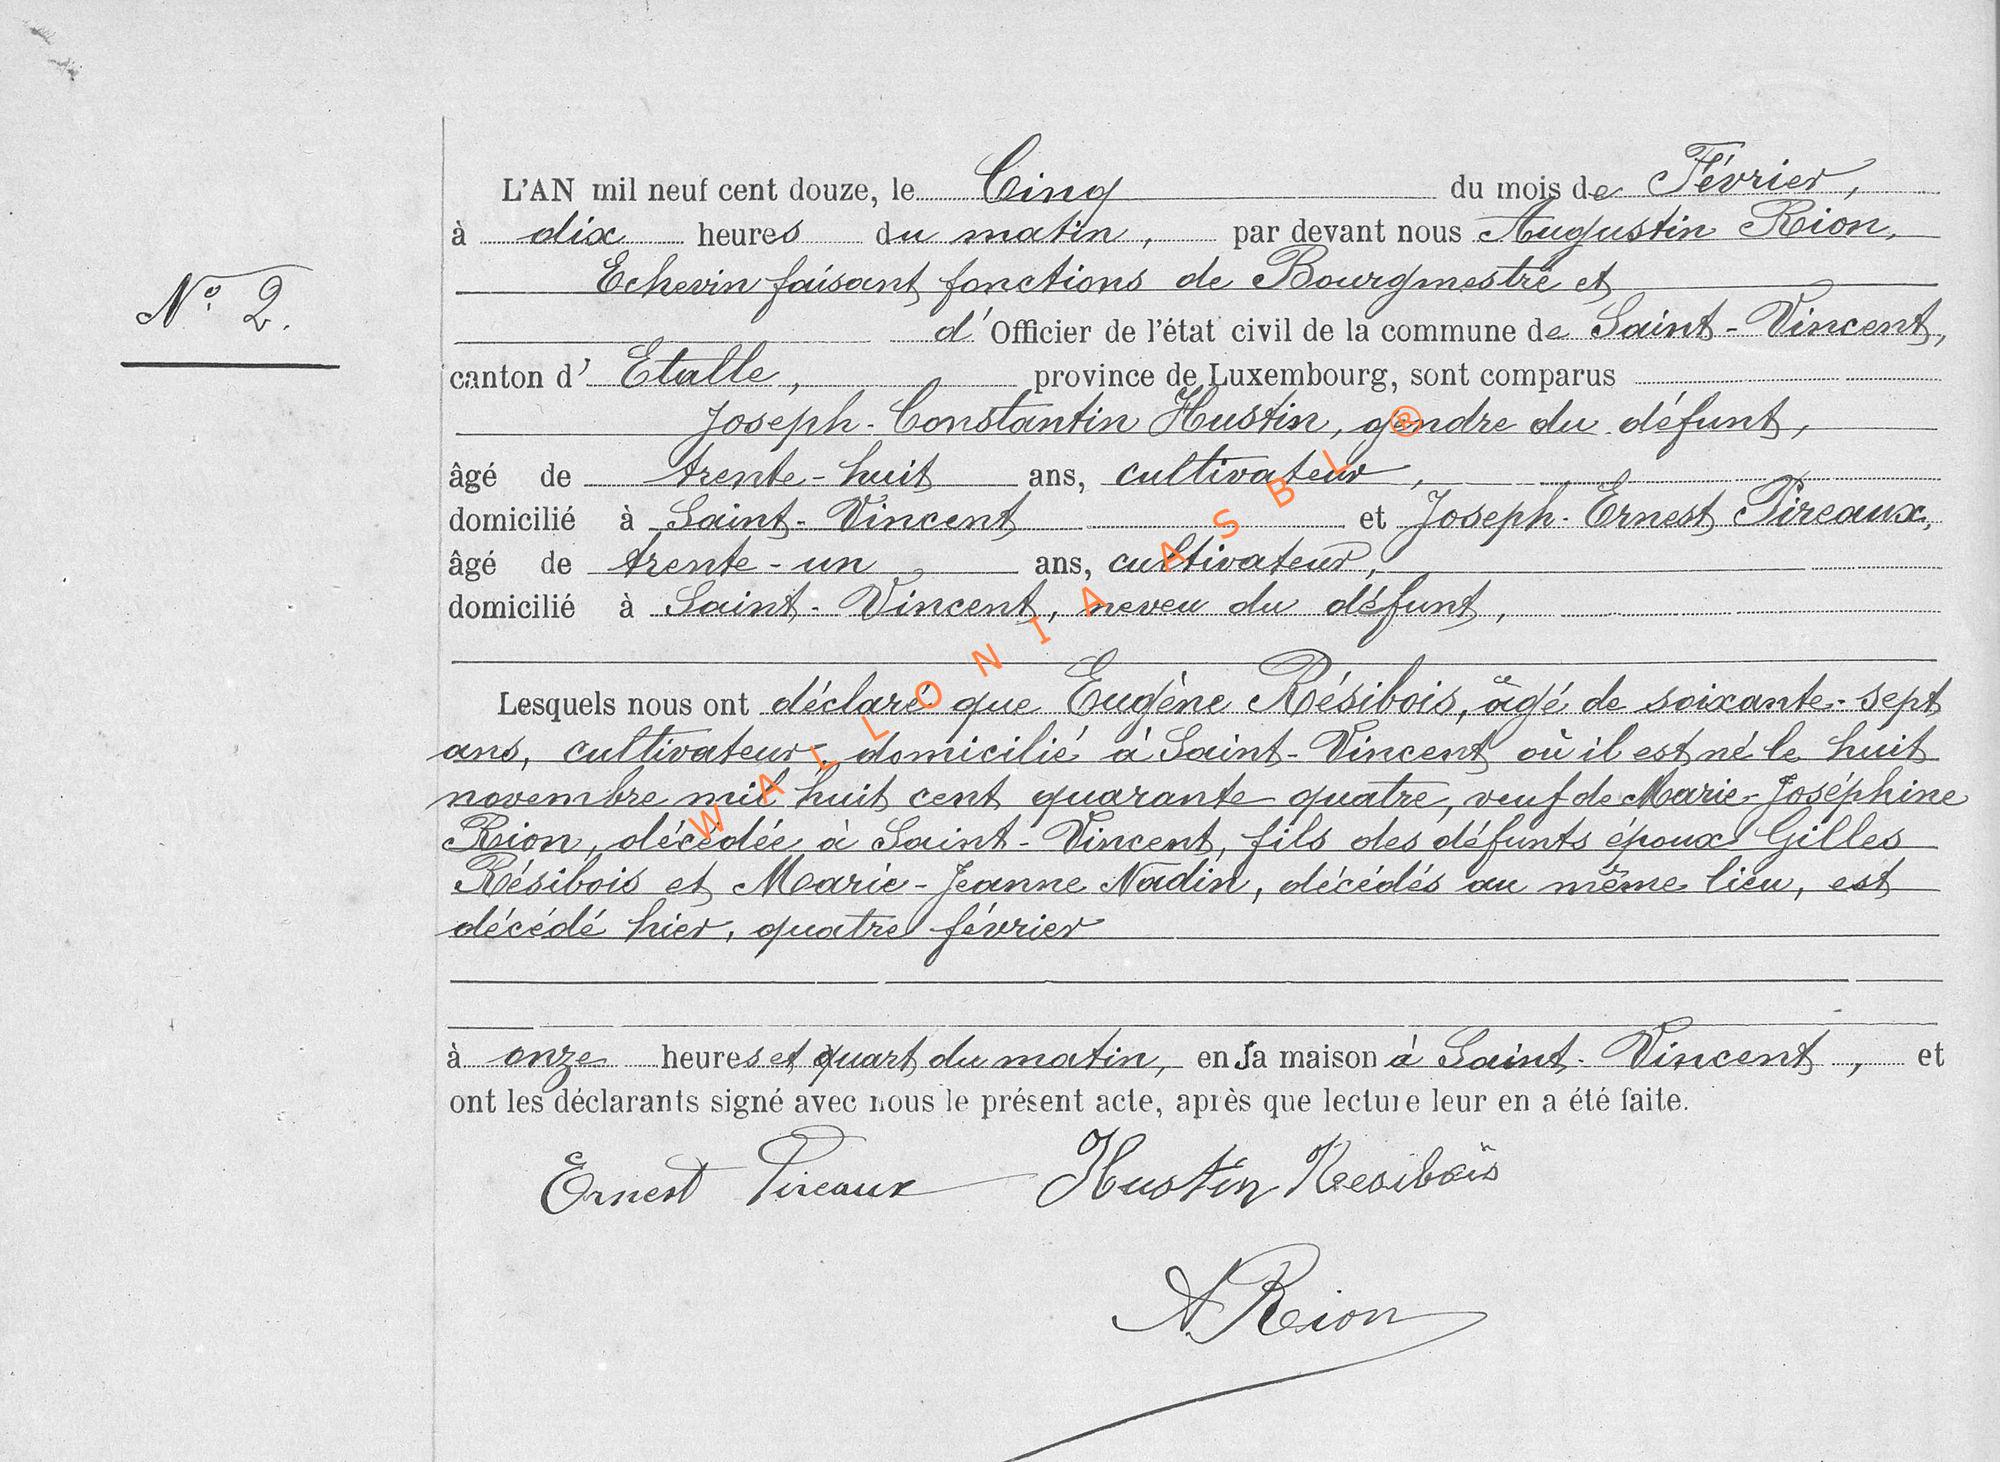 N° 2.
L'AN mil neuf cent douze, le Cinq du mois de Février,
à dix heures du matin, par devant nous Augustin Rion,
Echevin faisant fonctions de Bourgmestre et
d'Officier de l'état civil de la commune de Saint-Vincent,
canton d'Etalle, province de Luxembourg, sont comparus
Joseph-Constantin Hustin, gendre du défunt,
âgé de trente-huit ans, cultivateur,
domicilié à Saint-Vincent et Joseph-Ernest Pireaux,
âgé de trente-un ans, cultivateur,
domicilié à Saint-Vincent, neveu du défunt,
Lesquels nous ont déclaré que Eugène Résibois, âgé de soixante-sept
ans, cultivateur, domicilié à Saint-Vincent où il est né le huit
novembre mil huit cent quarante quatre, veuf de Marie-Joséphine
Rion, décédée à Saint-Vincent, fils des défunts époux Gilles
Résibois et Marie-Jeanne Nadin, décédés au même lieu, est
décédé hier, quatre février
à onze heures et quart du matin, en sa maison à Saint-Vincent, et
ont les déclarants signé avec nous le présent acte, après que lecture leur en a été faite.
Ernest Pireaux Hustin Résibois
A. Rion
WALLONIA ASBL ®